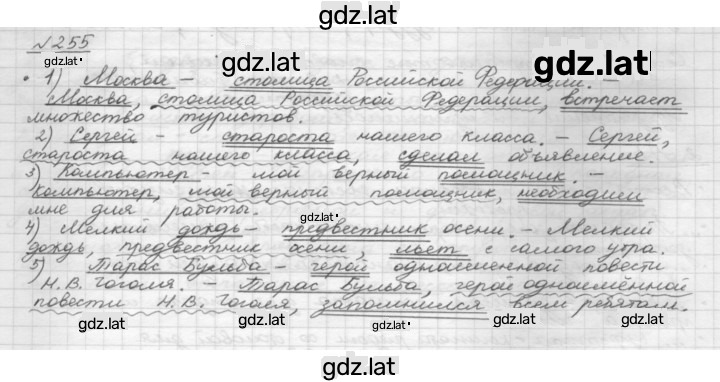 gdz.lat
№255
gdz.lat
gdz.lat
gdz.lat
1) Москва – столица Российской Федерации. –
Москва, столица Российской Федерации, встречает
множество туристов.
2) Сергей – староста нашего класса. – Сергей,
староста нашего класса, сделал объявление.
3) Компьютер – мой верный помощник. –
Компьютер, мой верный помощник, необходим
мне для работы.
gdz.lat
4) Мелкий дождь – предвестник осени. – Мелкий
дождь, предвестник осени, льёт с самого утра.
5) Тарас Бульба – герой одноимённой повести
Н.В. Гоголя. – Тарас Бульба, герой одноимённой
повести Н.В. Гоголя, запомнился всем ребятам.
gdz.lat
gdz.lat
gdz.lat
gdz.lat
gdz.lat